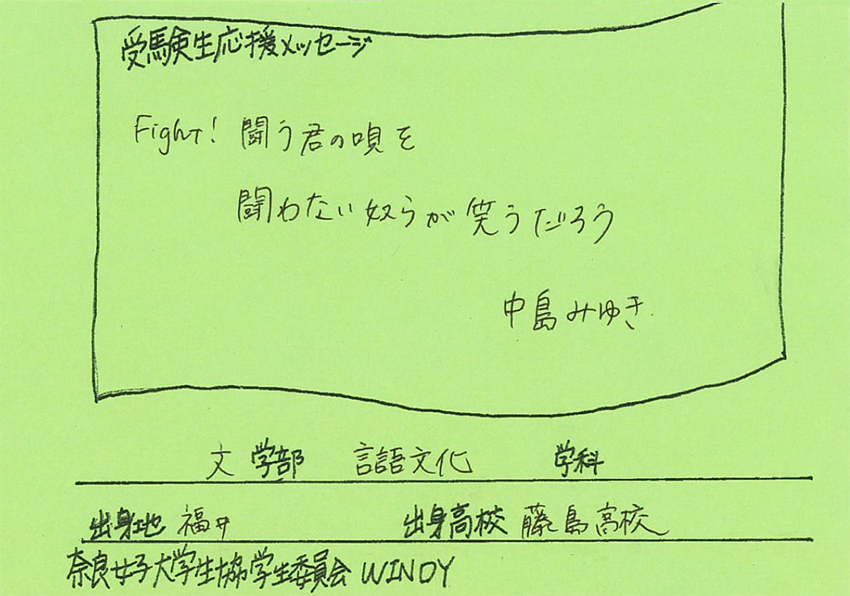 受験生応援メッセージ
Fight! 闘う君の唄を
闘わない奴らが笑うだろう
中島みゆき
文 学部 言語文化 学科
出身地 福井 出身高校 藤島高校
奈良女子大学生協学生委員会 WINDY